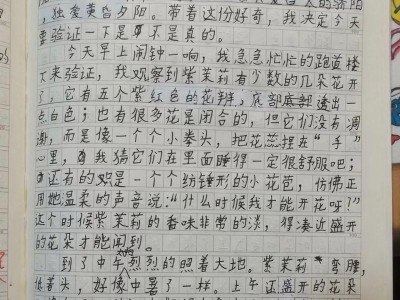 独爱黄昏夕阳。带着这份好奇,我决定今天
要验证一下是不是真的。
今天早上闹钟一响,我急急忙忙的跑道楼
下来验证,我观察到紫茉莉有少数的几朵花开
了,它有五个紫红色的花瓣,底部底部透出一
点白色;也有很多花是闭合的,但它们没有凋
谢,而是像一个个小拳头,把花蕊捏在“手”
心里,我猜它们在里面睡得一定很舒服吧;
还有的是一个个纺锤形的小花苞,仿佛正
用她温柔的声音说:“什么时候我才能开花呀?”
这个时候紫茉莉的香味非常的淡,得凑近盛开
的花朵才能闻到。
到了中午烈烈的照着大地。紫茉莉弯腰,
低着头,好像中暑了一样。上午还盛开的花朵